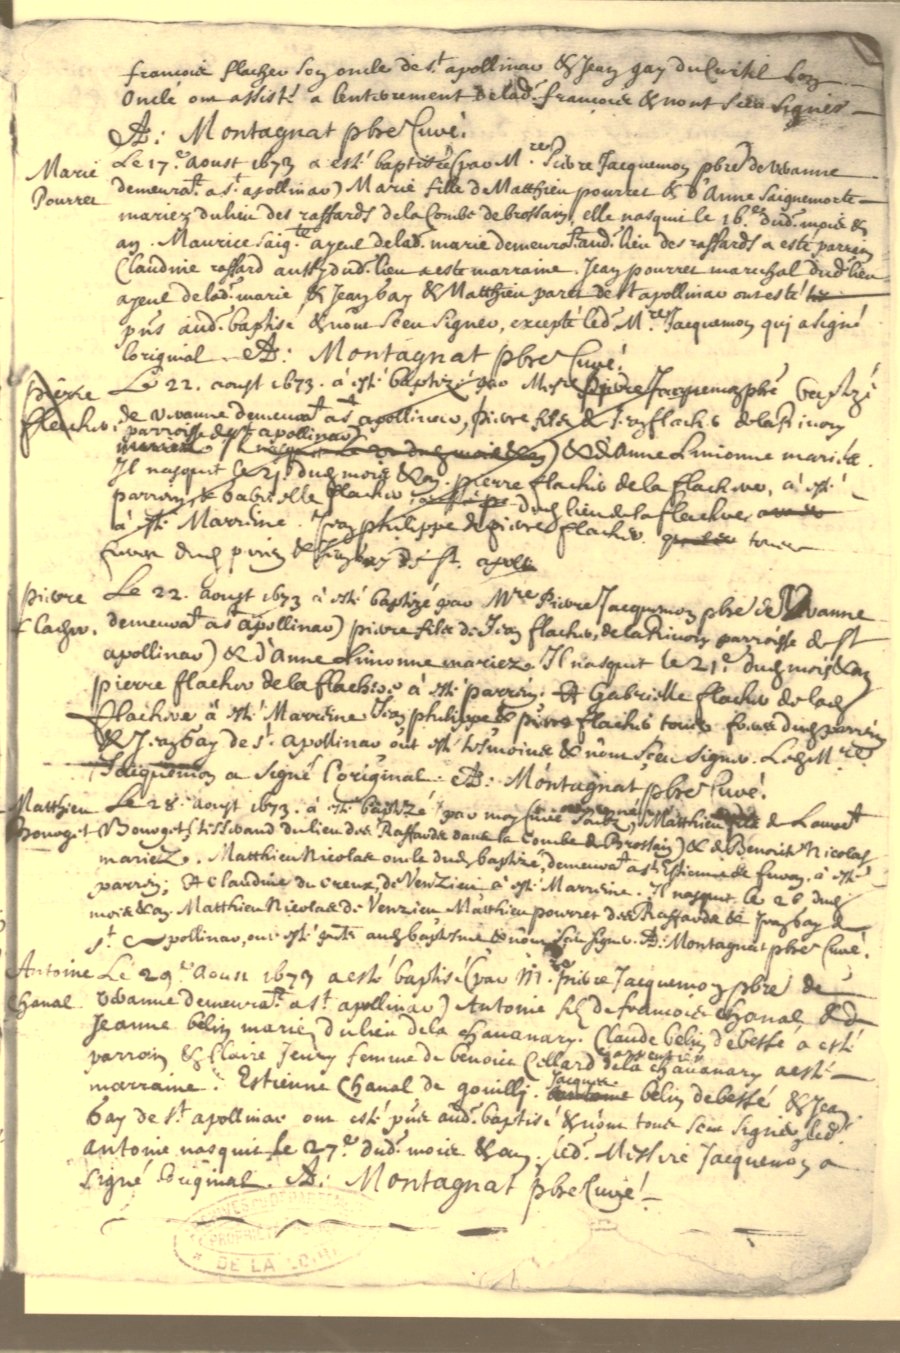 francoise flacher son oncle de st. apollinar & Jean gay du Curtil son
Oncle ont assisté a lenterrement de lad. francoise & nont sceu signer
A: Montagnat pbre Curé.
Marie Pourret
Le 17.e Aoust 1673 a esté baptisée (par M.re Pierre Jacquemon pbre de Vivanne
demeurat. a st. apollinar) Marie fille de Matthieu pourret & d'Anne Saignemorte
mariez du lieu des raffards de la Combe de brossain, elle nasquit le 16.e dud. mois &
an. Maurice Saig.te ayeul de lad. marie demeurat. aud. lieu des raffards a esté parrain
Claudine raffard aussy dud. lieu a esté marraine. Jean pourret marechal dud. lieu
ayeul de lad. marie & Jean Gay & Matthieu paret de st apollinar ont esté
pns aud. baptisé & nont sceu signer, excepté led. M.re Jacquemon qui a signé
loriginal. A: Montagnat pbre Curé.
Pierre flacher.
Le 22. aoust 1673. à esté baptizé par Messre pierre Jacquemon pbre
de vivanne demeurat. à st. apollinar, pierre fils de Jean flacher de la Rivory
parroisse de st apollinar
mariez & d'Anne Limonne mariez.
Il nasquit le 21.e dud. mois & an. pierre flacher de la flachere, à esté
parrain, & Gabrielle flacher dud. lieu de la flachere
à esté Marreine. Jean philippe & pierre flacher. tous
freres dud. parrein & Jean Gay de st. apoll
Pierre flacher.
Le 22. aoust 1673 à esté baptizé par Mre Pierre Jacquemon pbre de Vivanne
demeurat. à st apollinar) pierre fils de Jean flacher, de la Rivory parroisse de st
apollinar) & d'Anne Limonne mariez. Il nasquit le 21.e dud. mois & an
pierre flacher de la flachere à esté parrein. Et Gabrielle flacher de lad.
flachere à esté Marreine Jean philippe & pierre flacher tous freres dud. parrein
& Jean Gay de st. apollinar ont esté tesmoins & nont sceu signer. Led. M.re
Jacquemon a signé l'original. A: Montagnat pbre Curé.
Matthieu Bouvget
Le 28. Aoust 1673. à esté baptizé par moy Curé, Matthieu fils de Laurent
Bouvget (tisserand du lieu des Raffards dans la Combe de Brossain) & de Benoite Nicolas
mariez. Matthieu Nicolas oncle dud. baptizé, demeurat. a st. Estienne de furan. à esté
parrein, Et Claudine du Creux, de Venzieu à esté Marreine. Il nasquit le 26 dud.
mois & an Matthieu Nicolas de Venzieu Matthieu pourret des Raffards & Jean Gay de
st. Apollinar, ont esté pnts aud. baptesme & nont sceu signer. A: Montagnat pbre Curé.
Antoine Chanal
Le 29.e Aoust 1673 a esté baptisé (par M.re Pierre Jacquemon pbre de
Vivanne demeurat. a st. apollinar) Antoine fils de francois Chanal & de
Jeanne belin mariez du lieu de la Chavanary. Claude belin de bessé a esté
parrain & Claire Jeury femme de benoite Cellard de la Chavanary a esté
marraine. Estienne Chanal de gouilli. Jacques belin de bessé & Jean
Gay de st. apollinar ont esté pns aud. baptisé & nont tous sceu signer, led.
antoine nasquit le 27.e dud. mois & an. Led. Messire Jacquemon a
signé l'original. A: Montagnat pbre Curé.
DE LA LOIRE